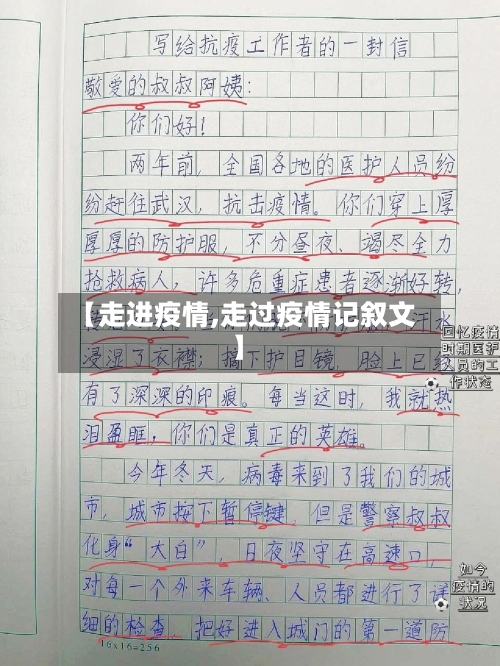 写给抗疫工作者的一封信
敬爱的叔叔阿姨:
你们好!
两年前,全国各地的医护人员纷
纷赶往武汉,抗击疫情。你们穿上厚
厚的防护服,不分昼夜、竭尽全力
抢救病人,许多危重症患者逐渐好转,
汗水
【走进疫情,走过疫情记叙文
】
浸湿了衣襟;摘下护目镜,脸上已经
有了深深的印痕。每当这时,我就热
泪盈眶,你们是真正的英雄。
回忆疫情
时期医护
人员的工
作状态
今年冬天,病毒来到了我们的城
市,城市按下暂停键,但是警察叔叔
化身“大白”,日夜坚守在高速口,
对每一个外来车辆、人员都进行了详
细的检查,把好进入城门的第一道防
如今
疫情的
状况
16x16=256